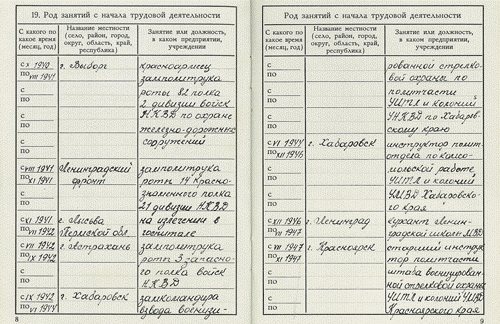 19. Род занятий с начала трудовой деятельности
С какого по какое время (месяц, год)
Название местности (село, район, город, округ, область, край, республика)
Занятие или должность, в каком предприятии, учреждении
с X 1940 г. Выборг красноармеец
по VIII 1941 замполитрука
с роты 82 полка
по 2 дивизии войск
с НКВД по охране
по железно-дорожных
с сооружений
по
с VIII 1941 Ленинградский замполитрука
по XI 1941 фронт роты 14 красно-
с знаменного полка
по 21 дивизии НКВД
с XI 1941 г. Лысьва на излечении в
по VII 1942 Пермской обл. госпитале
с VII 1942 г. Астрахань замполитрука
по IX 1942 роты 3 запасно-
с го полка войск
по НКВД
с IX 1942 г. Хабаровск замкомандира
по VI 1944 взвода военизи-
8
19. Род занятий с начала трудовой деятельности
С какого по какое время (месяц, год)
Название местности (село, район, город, округ, область, край, республика)
Занятие или должность, в каком предприятии, учреждении
с рованной стрелко-
по вой охраны по
с политчасти
по УИТЛ и колоний
с УНКВД по Хабаров-
по скому краю
с VI 1944 г. Хабаровск инструктор полит-
по XII 1946 отдела по комсо-
с мольской работе
по УИТЛ и колоний
с УМВД Хабаровско-
по го края
с XI 1946 г. Ленинград курсант Ленин-
по VII 1947 градской школы МВД
с VII 1947 г. Красноярск старший инструк-
по XI 1947 тор политчасти
с штаба военизирован-
по ной стрелковой охраны
с УИТЛ и колоний УМВД
по Красноярского края
9